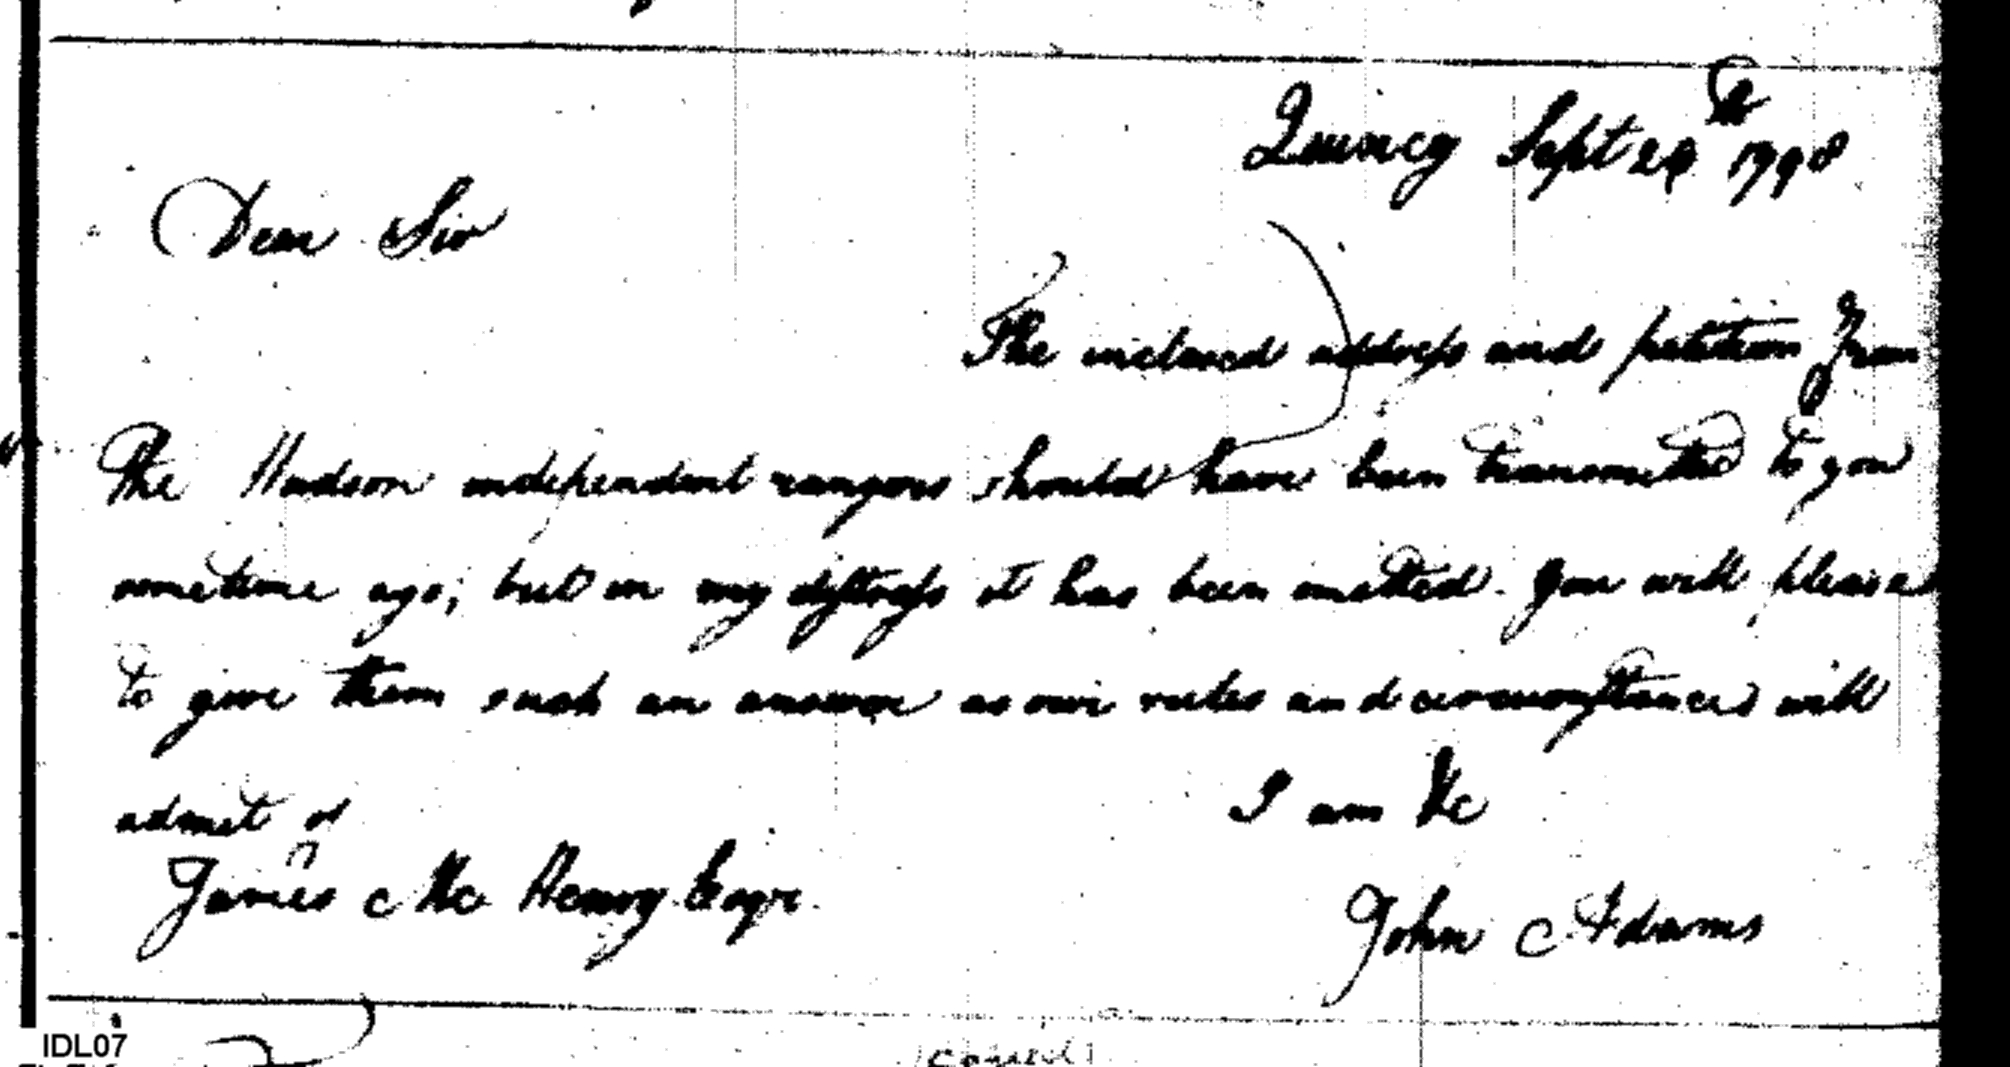 Quincy Sept 1798
Dear Sir
The inclosed address and petition from
the Hudson independent rangers should have been transmitted to you
sometime ago; but in my distress it has been omitted. You will please
to give them such an answer as our rules and circumstances will
admit of
I am &c
James McHenry Esqr.
John Adams
IDL07